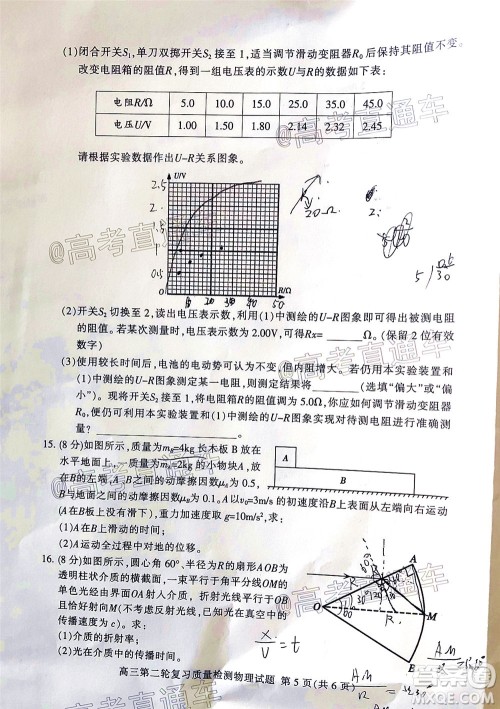 (1)闭合开关S₁,单刀双掷开关S₂接至1,适当调节滑动变阻器R₀后保持其阻值不变。
改变电阻箱的阻值R,得到一组电压表的示数U与R的数据如下表:
电阻R/Ω 5.0 10.0 15.0 25.0 35.0 45.0
电压U/V 1.00 1.50 1.80 2.14 2.32 2.45
请根据实验数据作出U-R关系图象。
U/V
2.5
2
1.5
1
0.5
0 10 20 30 40 50
R/Ω
20Ω
(2)开关S₂切换至2,读出电压表示数,利用(1)中测绘的U-R图象即可得出被测电阻
的阻值。若某次测量时,电压表示数为2.00V,可得Rx=______Ω。(保留2位有效
数字)
(3)使用较长时间后,电池的电动势可认为不变,但内阻增大。若仍用本实验装置和
(1)中测绘的U-R图象测定某一电阻,则测定结果将______(选填“偏大”或“偏
小”)。现将开关S₂接至1,将电阻箱R的阻值调节为5.0Ω,你应如何调节滑动变阻器
R₀,便仍可利用本实验装置和(1)中测绘的U-R图象实现对待测电阻进行准确测
量?______
15.(8分)如图所示,质量为m_B=4kg长木板B放在
水平地面上,一质量为m_A=2kg的小物块A,放
在B的左端,A、B之间的动摩擦因数μ₁为0.5,
B与地面之间的动摩擦因数μ₂为0.1。A以v₀=3m/s的初速度沿B上表面从左端向右运动
且未从B右端滑出,重力加速度值g=10m/s²,求:
(1)A在B上滑动的时间;
(2)A运动全过程中对地的位移。
A
B
16.(8分)如图所示,圆心角60°,半径为R的扇形AOB为
透明柱状介质的横截面,一束平行于角平分线OM的
单色光由OA射入介质,折射光线平行于OB
且恰好射向M(不考虑反射光线,已知光在真空中的
传播速度为c)。求:
(1)介质的折射率;
(2)光在介质中的传播时间。
O
A
M
B
x/v = t
高三第二轮复习质量检测物理试题 第5页(共6页)
@高考直通车
@高考直通车
@高考直通车
答案圈
MXQE.COM